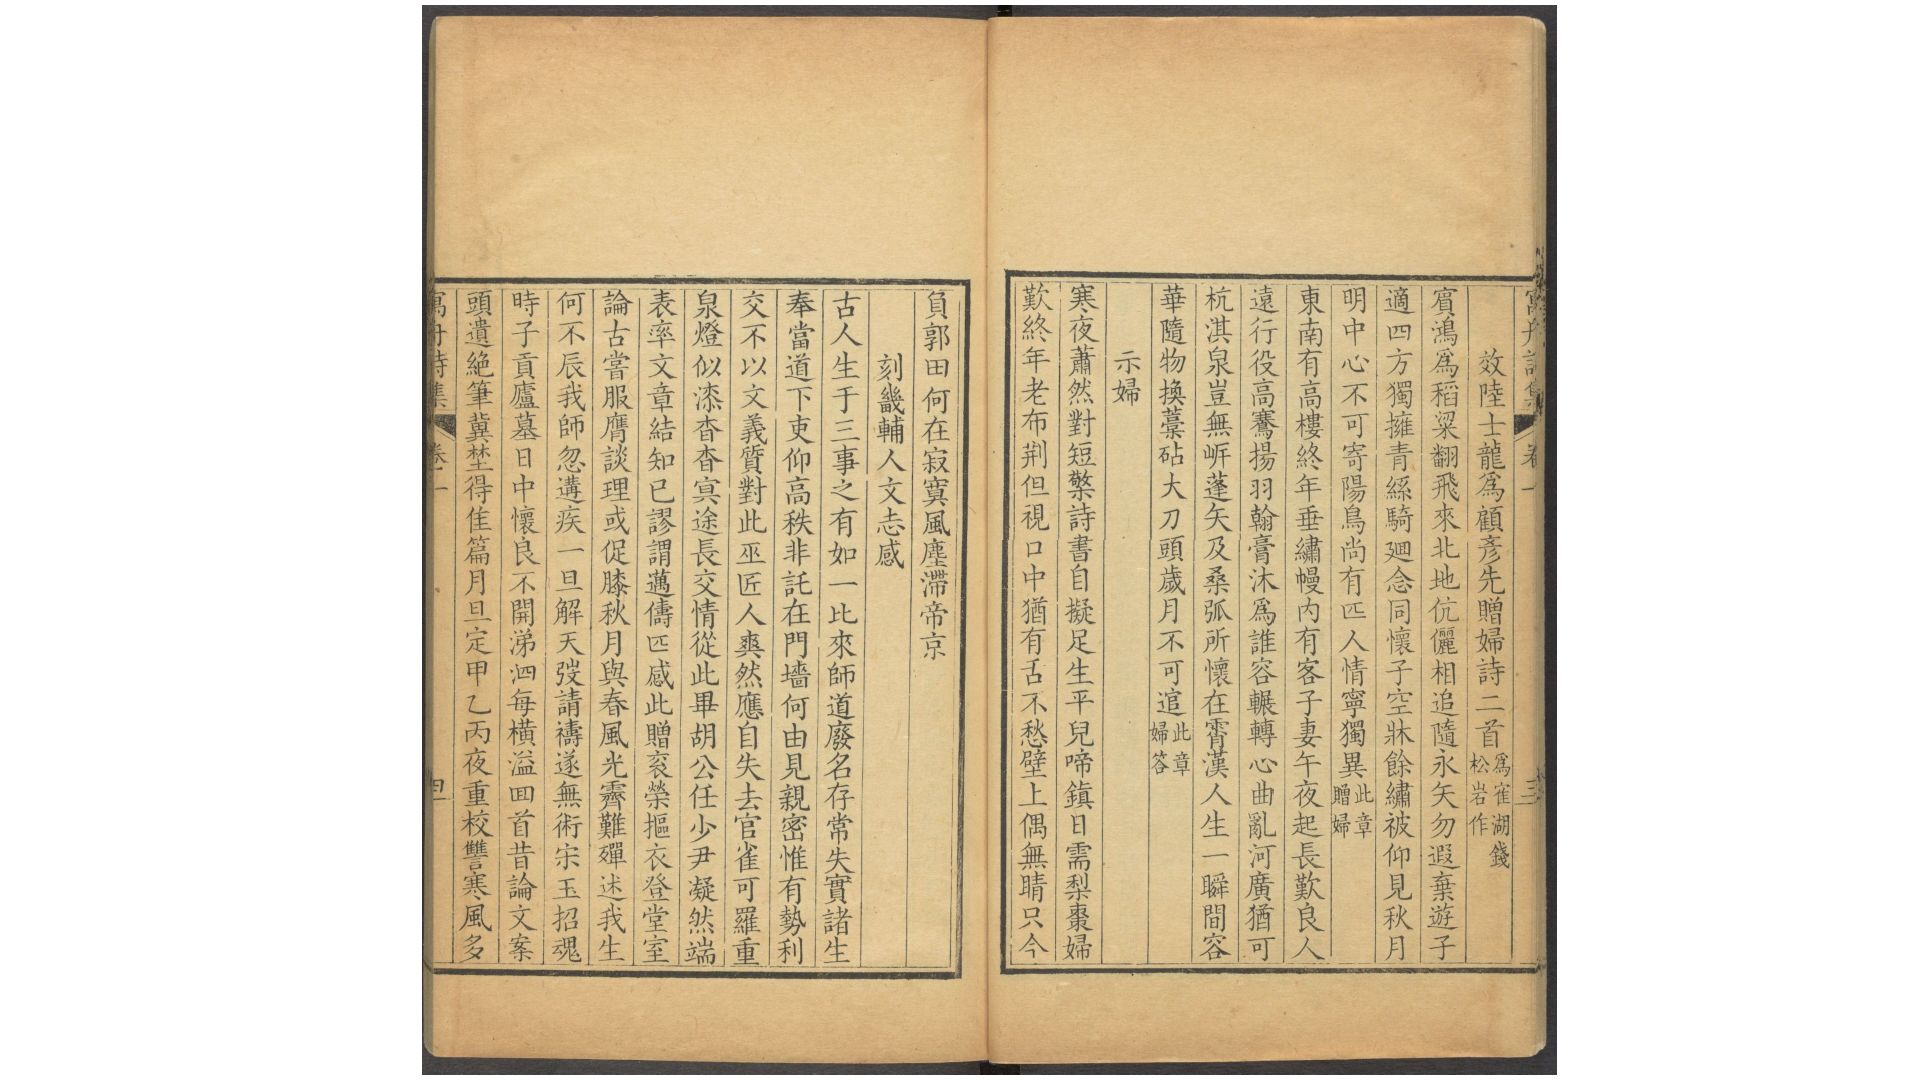 寓舟詩集 卷一 三
效陸士龍爲顧彥先贈婦詩二首 爲寉湖錢松岩作
賓鴻爲稻粱翻飛來北地伉儷相追隨永矢勿遐棄遊子
適四方獨擁青絲騎廻念同懷子空牀餘繡被仰見秋月
明中心不可寄陽鳥尚有匹人情寧獨異 此章贈婦
東南有高樓終年垂繡幔內有客子妻午夜起長歎良人
遠行役高騫揚羽翰膏沐爲誰容輾轉心曲亂河廣猶可
杭淇泉豈無岸蓬矢及桑弧所懷在霄漢人生一瞬間容
華隨物換藁砧大刀頭歲月不可逭 此章婦答
示婦
寒夜蕭然對短檠詩書自擬足生平兒啼鎮日需梨棗婦
歎終年老布荆但視口中猶有舌不愁壁上偶無晴只今
負郭田何在寂寞風塵滯帝京
刻畿輔人文志感
古人生于三事之有如一比來師道廢名存常失實諸生
奉當道下吏仰高秩非託在門墻何由見親密惟有勢利
交不以文義質對此巫匠人爽然應自失去官雀可羅重
泉燈似漆杳杳冥途長交情從此畢胡公任少尹凝然端
表率文章結知已謬謂邁儔匹感此贈衮榮摳衣登堂室
論古嘗服膺談理或促膝秋月與春風光霽難殫述我生
何不辰我師忽遘疾一旦解天弢請禱遂無術宋玉招魂
時子貢廬墓日中懷良不開涕泗每橫溢回首昔論文案
頭遺絕筆冀埜得隹篇月旦定甲乙丙夜重校讐寒風多
寓舟詩集 卷一 四